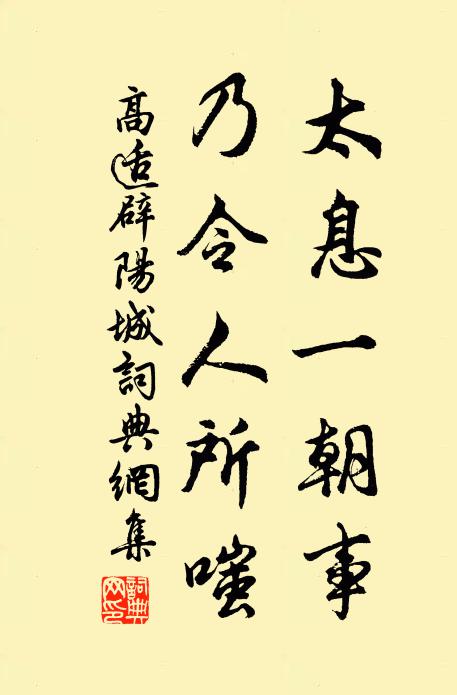 太息一朝事
乃令人所嗤
高适辟陽城詞典網集
詞典網印